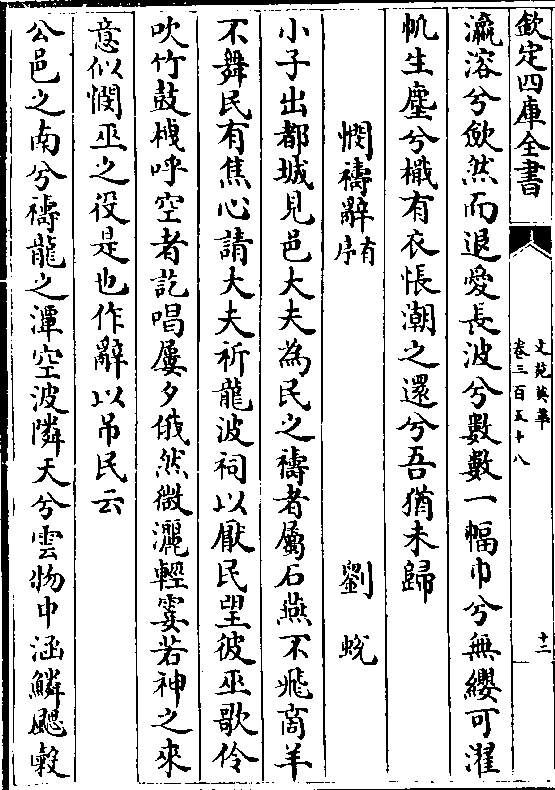 欽定四庫全書
文苑英華
卷三百五十八
十二
瀛溶兮歛然而退愛長波兮數數一幅巾兮無纓可濯
帆生塵兮檝有衣悵潮之還兮吾猶未歸
憫禱辭有序 劉蛻
小子出都城見邑大夫為民之禱者屬石燕不飛商羊
不舞民有焦心請大夫祈龍波祠以厭民望彼巫歌伶
吹竹鼓槐呼空者訖唱屢夕俄然微灑輕霎若神之來
意似憫巫之役是也作辭以吊民云
公邑之南兮禱龍之潭空波隣天兮雲物中涵鱗颸縠